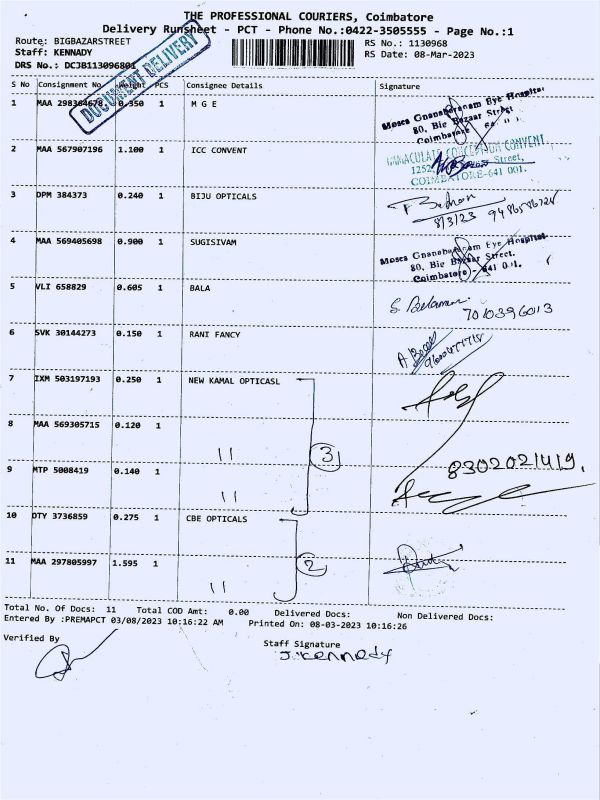 THE PROFESSIONAL COURIERS, Coimbatore
Delivery Runsheet - PCT - Phone No.:0422-3505555 - Page No.:1
Route: BIGBAZARSTREET
RS No.: 1130968
Staff: KENNADY
RS Date: 08-Mar-2023
DRS No.: DCJB113096801
DOCUMENT DELIVERY
S No Consignment No. Weight PCS Consignee Details Signature
1 MAA 298364678 0.350 1 M G E
Moses Gnanabaranam Eye Hospital
80, Big Bazaar Street
Coimbatore
2 MAA 567907196 1.100 1 ICC CONVENT
IMMACULATE CONCEPTION CONVENT
1252, Street,
COIMBATORE-641 001.
3 DPM 384373 0.240 1 BIJU OPTICALS
8/3/23
4 MAA 569405698 0.900 1 SUGISIVAM
Moses Gnanabaranam Eye Hospital
80, Big Bazaar Street.
Coimbatore - 641 001.
5 VLI 658829 0.605 1 BALA
7010396013
6 SVK 30144273 0.150 1 RANI FANCY
7 IXM 503197193 0.250 1 NEW KAMAL OPTICASL
8 MAA 569305715 0.120 1 11
3
9 MTP 5008419 0.140 1 11
8302021419.
10 DTY 3736859 0.275 1 CBE OPTICALS
2
11 MAA 297805997 1.595 1 11
Total No. Of Docs: 11 Total COD Amt: 0.00 Delivered Docs: Non Delivered Docs:
Entered By :PREMAPCT 03/08/2023 10:16:22 AM Printed On: 08-03-2023 10:16:26
Verified By
Staff Signature
J. Kennady